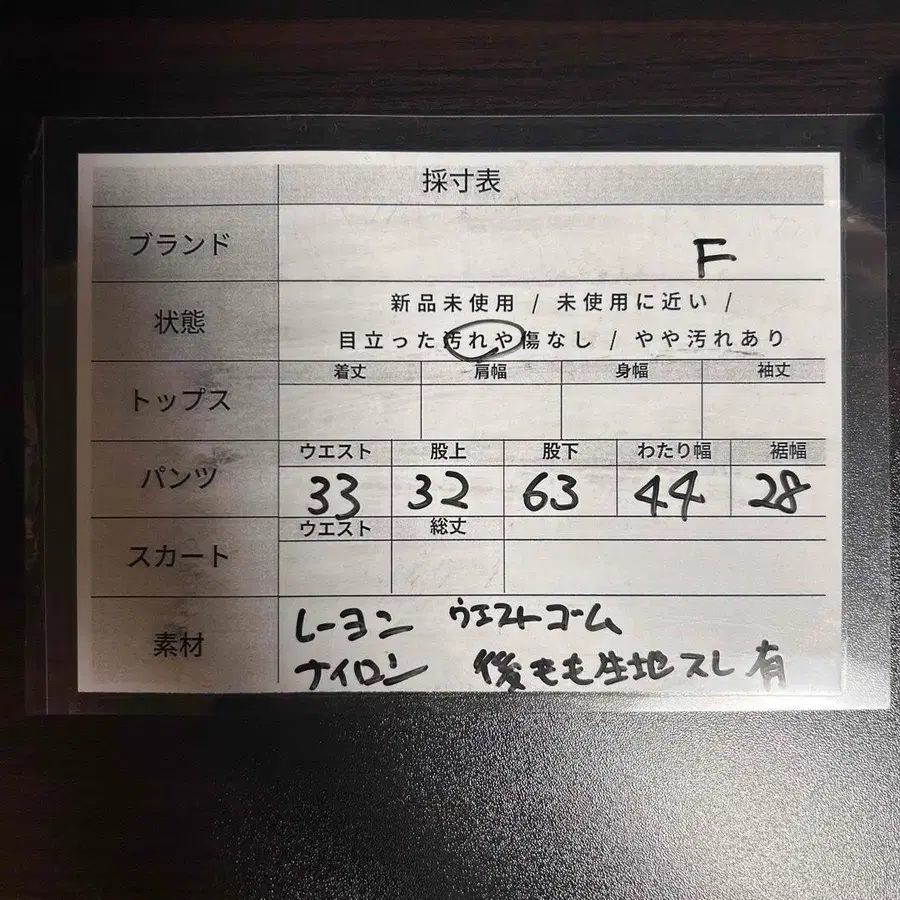 採寸表
ブランド
F
状態
新品未使用 / 未使用に近い /
目立った汚れや傷なし / やや汚れあり
トップス
着丈 肩幅 身幅 袖丈
パンツ
ウエスト 股上 股下 わたり幅 裾幅
33 32 63 44 28
スカート
ウエスト 総丈
素材
レーヨン ウエストゴム
ナイロン 後もも生地スレ有